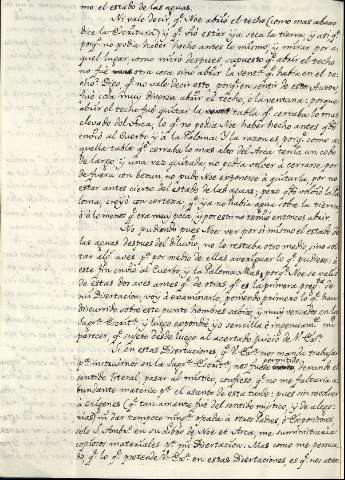 mo el estado de las aguas.
Ni vale decir, qe. Noe abrió el techo (como mas abaxo
dice la Escritura) y qe. vió estar ya seca la tierra, y así qe.
porqe. no podia haber hecho antes lo mismo, y mirar por a
quel lugar, como miró despues, supuesto qe. abrir el techo
no fué otra cosa sino abrir la vent.a qe. habia en el te
cho? Digo, qe. no vale decir esto, porqe. en sentir de este Autor
fué cosa muy diversa abrir el techo, o la ventana: porque
abrir el techo fué quitar la tabla qe. cerraba lo mas
elevado del Arca, lo qe. no podia Noe haber hecho antes qe.
envió al Cuervo, y á la Paloma. Y la razon es, porqe. como a
quella tabla qe. cerraba lo mas alto del Arca tenia un codo
de largo, y una vez quitada, no podia volver á cerrarse, por
defuera con betun, no pudo Noe exponerse á quitarla por no
estar antes cierto del estado de las aguas; pero qdo. volvió la Pa
loma, creyó con certeza, qe. ya no habia agua sobre la tierra
ó á lo menos qe. era muy poca, y por esto no temió entonces abrir.
No pudiendo pues Noe ver por sí mismo el estado de
las aguas despues del diluvio, no le restaba otro medio, sino sol
tar algs. aves pa. por medio de ellas averiguar lo qe. pudiese: á
este fin envió al Cuervo, y la Paloma. Mas porqe. Noe se valió
de estas dos aves antes qe. de otras, qe. es la primera preg.ta de
mi Disertacion, voy á examinarlo, poniendo primero lo qe. han
discurrido sobre este punto hombres sabios, y muy versados en la
Sagr.a Escrit.a y luego expondré yo sencilla é ingenuam.te mi
parecer, qe. sujeto desde luego al acertado juicio de V. Ex.a
Si en estas Disertaciones, qe. V. Ex.a nos manda trabajar
pa. instruirnos en la Sagr.a Escrit.a nos fuese permitido, dexando el
sentido literal, pasar al mistico, confieso qe. no me faltaria a
bundante materia pa. el asunto de esta tarde: pues sin revolver
á Origenes (qe. tan amante fué del sentido mistico, y de alego-
rias) ni dar tampoco ning.a ojeada á otros Padres, ó Expositores,
solo S. Ambr.o en su libro de Noe et Arca me suministraria
copiosos materiales pa. mi Disertacion. Mas como me persua
do qe. lo qe. pretende V. Ex.a en estas Disertaciones, es qe. nos ate